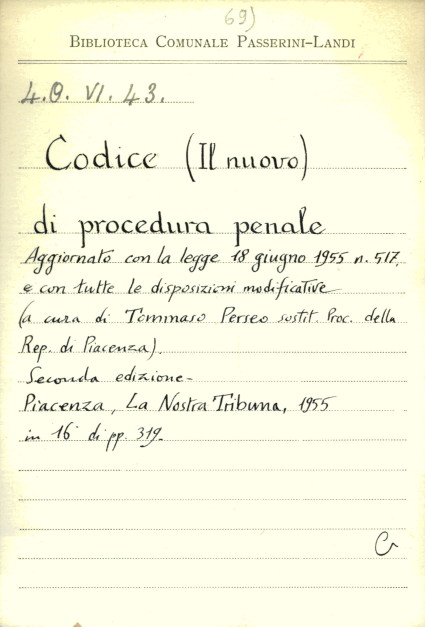 69)
BIBLIOTECA COMUNALE PASSERINI-LANDI
4.O. VI. 43.
Codice (Il nuovo)
di procedura penale
Aggiornato con la legge 18 giugno 1955 n. 517,
e con tutte le disposizioni modificative
(a cura di Tommaso Perseo sostit. Proc. della
Rep. di Piacenza).
Seconda edizione-
Piacenza, La Nostra Tribuna, 1955
in 16° di pp. 319.